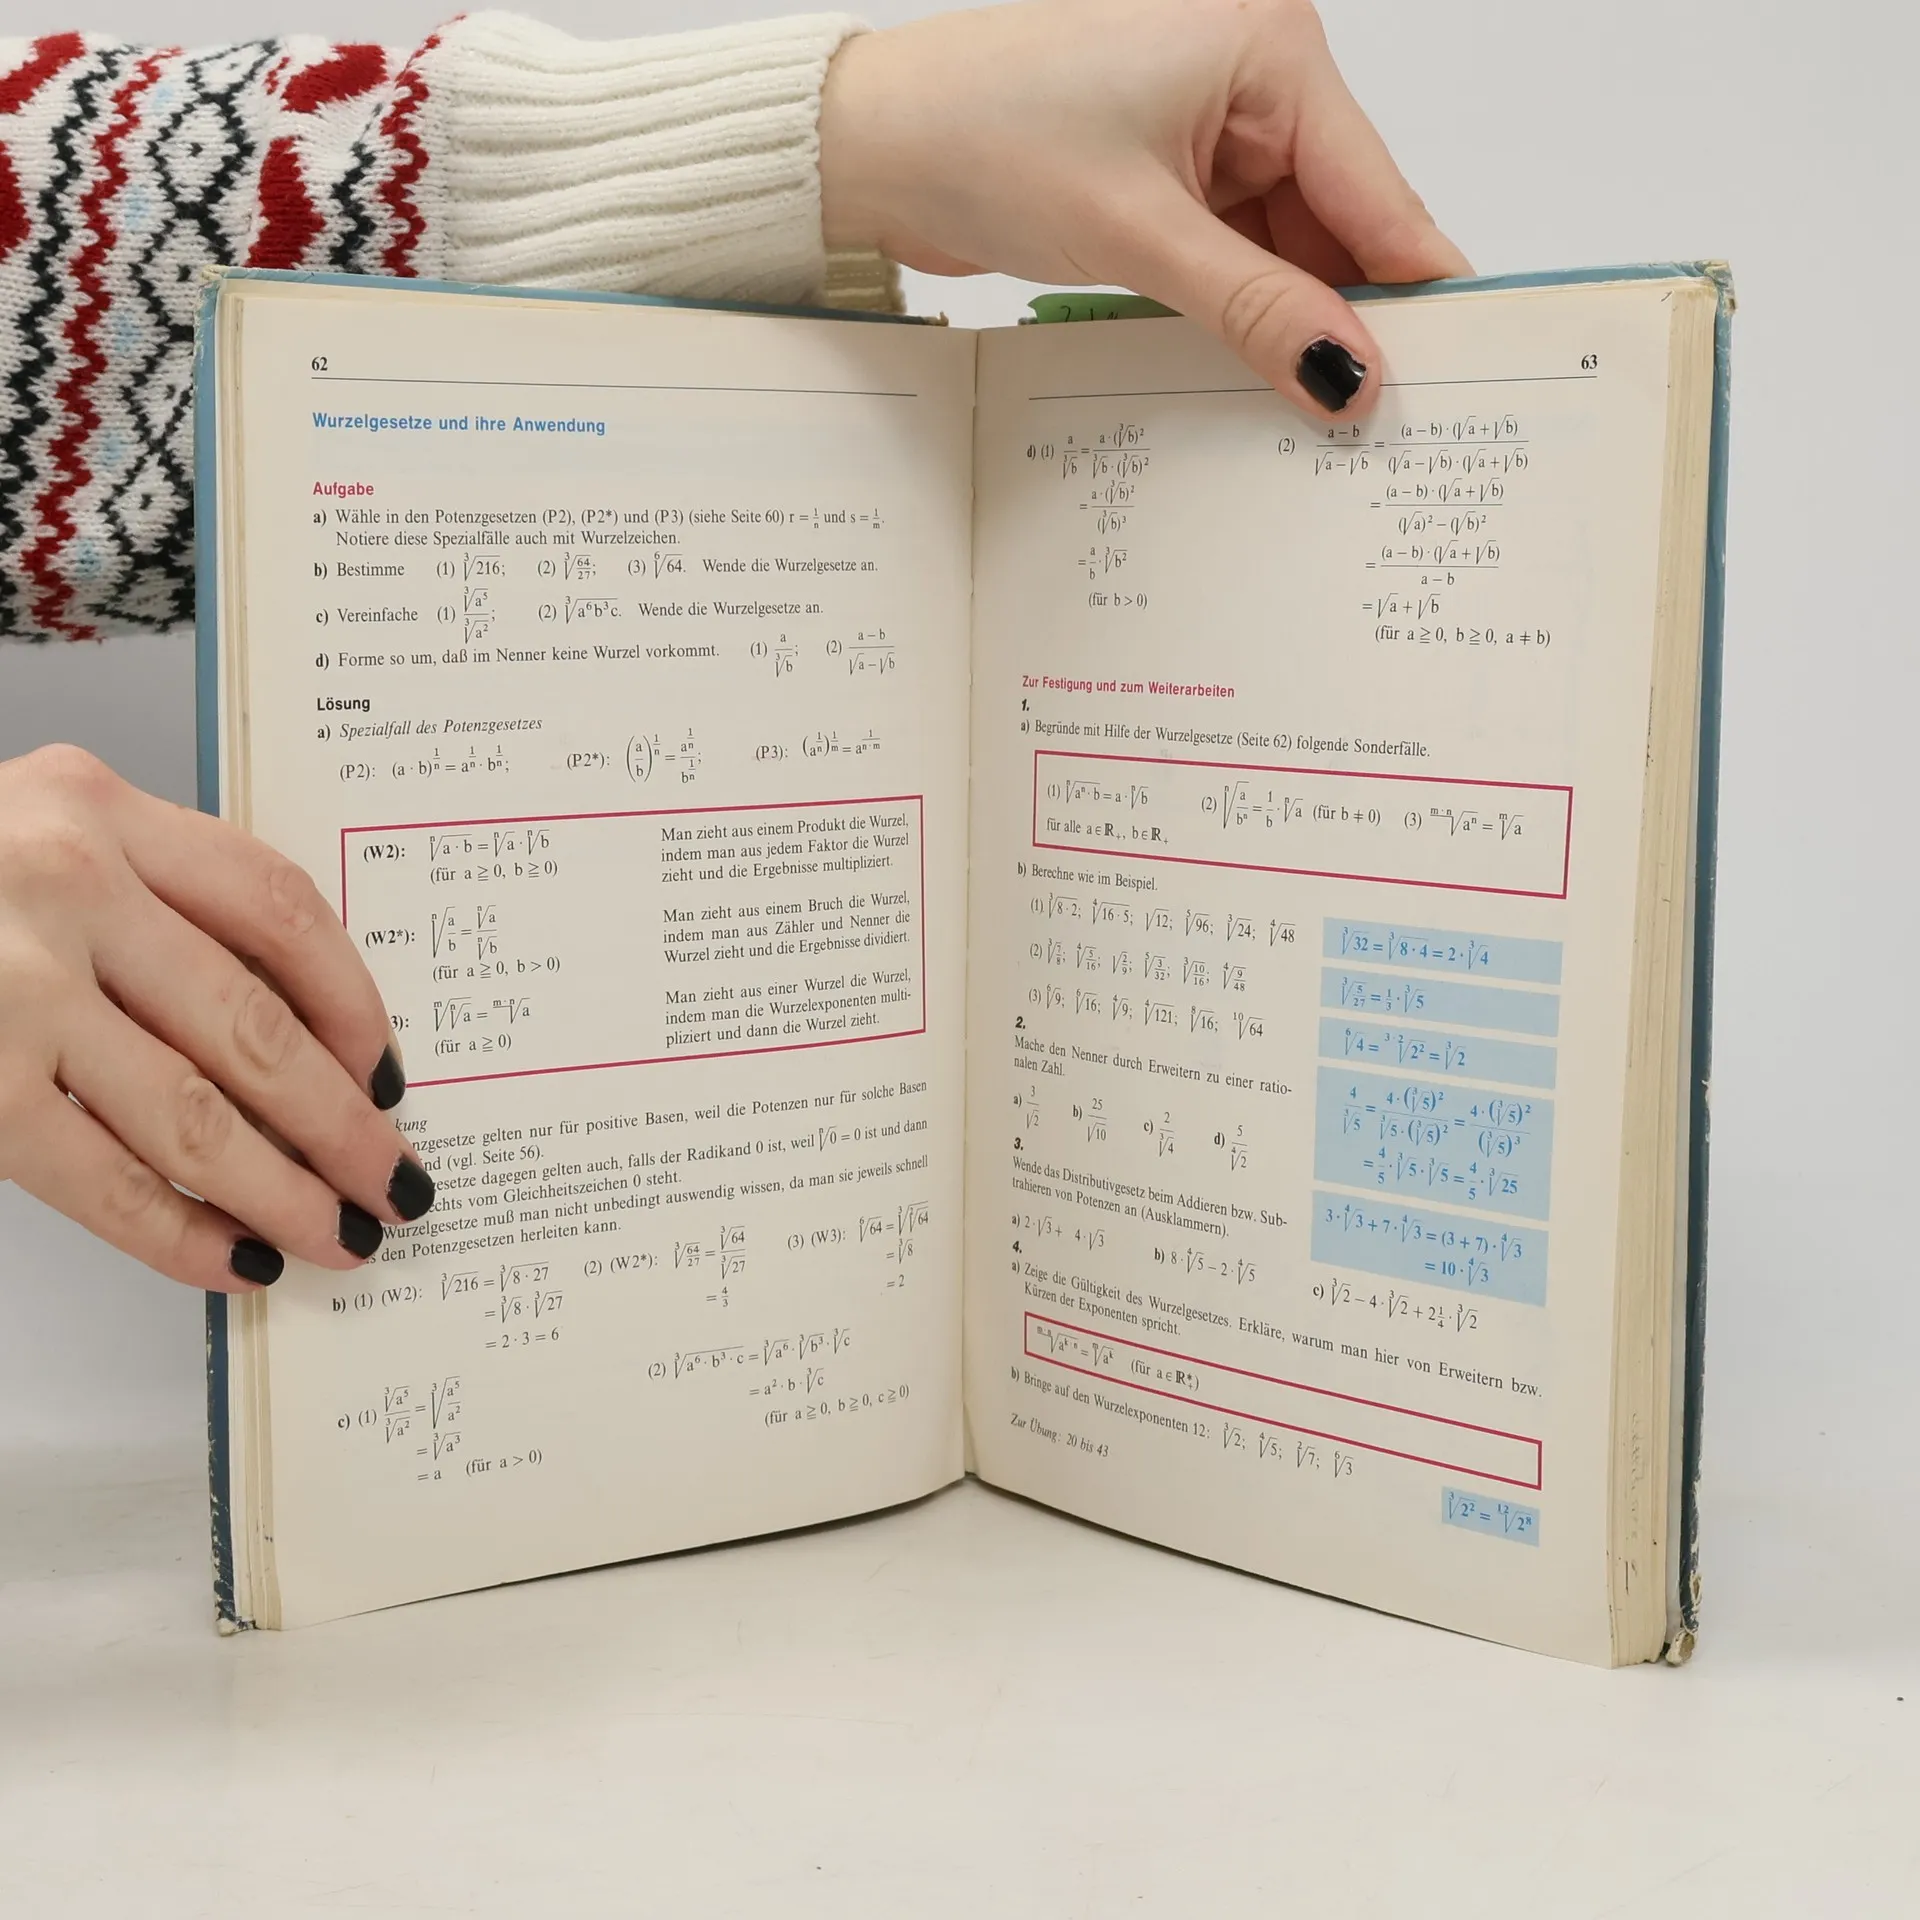 62
Wurzelgesetze und ihre Anwendung
Aufgabe
a) Wähle in den Potenzgesetzen (P2), (P2*) und (P3) (siehe Seite 60) r = 1/n und s = 1/m.
Notiere diese Spezialfälle auch mit Wurzelzeichen.
b) Bestimme (1) ∛216; (2) ∛(64/27); (3) ⁶√64. Wende die Wurzelgesetze an.
c) Vereinfache (1) ∛a⁵/∛a²; (2) ∛(a⁶b³c). Wende die Wurzelgesetze an.
d) Forme so um, daß im Nenner keine Wurzel vorkommt. (1) a/∛b; (2) (a − b)/(√a − √b)
Lösung
a) Spezialfall des Potenzgesetzes
(P2): (a · b)^(1/n) = a^(1/n) · b^(1/n); (P2*): (a/b)^(1/n) = a^(1/n)/b^(1/n); (P3): (a^(1/n))^(1/m) = a^(1/(n·m))
(W2): ⁿ√(a · b) = ⁿ√a · ⁿ√b
(für a ≧ 0, b ≧ 0)
Man zieht aus einem Produkt die Wurzel,
indem man aus jedem Faktor die Wurzel
zieht und die Ergebnisse multipliziert.
(W2*): ⁿ√(a/b) = ⁿ√a/ⁿ√b
(für a ≧ 0, b > 0)
Man zieht aus einem Bruch die Wurzel,
indem man aus Zähler und Nenner die
Wurzel zieht und die Ergebnisse dividiert.
3): ᵐ√(ⁿ√a) = ᵐ·ⁿ√a
(für a ≧ 0)
Man zieht aus einer Wurzel die Wurzel,
indem man die Wurzelexponenten multi-
pliziert und dann die Wurzel zieht.
kung
nzgesetze gelten nur für positive Basen, weil die Potenzen nur für solche Basen
nd (vgl. Seite 56).
esetze dagegen gelten auch, falls der Radikand 0 ist, weil ⁿ√0 = 0 ist und dann
echts vom Gleichheitszeichen 0 steht.
Wurzelgesetze muß man nicht unbedingt auswendig wissen, da man sie jeweils schnell
s den Potenzgesetzen herleiten kann.
b) (1) (W2): ∛216 = ∛(8 · 27)
= ∛8 · ∛27
= 2 · 3 = 6
(2) (W2*): ∛(64/27) = ∛64/∛27
= 4/3
(3) (W3): ⁶√64 = ∛(²√64)
= ∛8
= 2
c) (1) ∛a⁵/∛a² = ∛(a⁵/a²)
= ∛a³
= a (für a > 0)
(2) ∛(a⁶ · b³ · c) = ∛a⁶ · ∛b³ · ∛c
= a² · b · ∛c
(für a ≧ 0, b ≧ 0, c ≧ 0)
63
d) (1) a/∛b = a · (∛b)²/(∛b · (∛b)²)
= a · (∛b)²/(∛b)³
= a/b · ∛b²
(für b > 0)
(2) (a − b)/(√a − √b) = (a − b) · (√a + √b)/((√a − √b) · (√a + √b))
= (a − b) · (√a + √b)/((√a)² − (√b)²)
= (a − b) · (√a + √b)/(a − b)
= √a + √b
(für a ≧ 0, b ≧ 0, a ≠ b)
Zur Festigung und zum Weiterarbeiten
1.
a) Begründe mit Hilfe der Wurzelgesetze (Seite 62) folgende Sonderfälle.
(1) ⁿ√(aⁿ · b) = a · ⁿ√b (2) ⁿ√(a/bⁿ) = 1/b · ⁿ√a (für b ≠ 0) (3) ᵐ·ⁿ√aⁿ = ᵐ√a
für alle a ∈ ℝ₊, b ∈ ℝ₊
b) Berechne wie im Beispiel.
(1) ∛(8 · 2); ∜(16 · 5); √12; ⁵√96; ∛24; ∜48
(2) ∛(7/8); ∜(5/16); √(2/9); ⁵√(3/32); ∛(10/16); ∜(9/48)
(3) ⁶√9; ⁶√16; ∜9; ∜121; ⁸√16; ¹⁰√64
∛32 = ∛(8 · 4) = 2 · ∛4
∛(5/27) = 1/3 · ∛5
⁶√4 = ³·²√2² = ∛2
2.
Mache den Nenner durch Erweitern zu einer ratio-
nalen Zahl.
a) 3/√2 b) 25/√10 c) 2/∛4 d) 5/∜2
4/∛5 = 4 · (∛5)²/(∛5 · (∛5)²) = 4 · (∛5)²/(∛5)³
= 4/5 · ∛5 · ∛5 = 4/5 · ∛25
3.
Wende das Distributivgesetz beim Addieren bzw. Sub-
trahieren von Potenzen an (Ausklammern).
a) 2 · √3 + 4 · √3 b) 8 · ∜5 − 2 · ∜5 c) ∛2 − 4 · ∛2 + 2 1/4 · ∛2
3 · ∜3 + 7 · ∜3 = (3 + 7) · ∜3
= 10 · ∜3
4.
a) Zeige die Gültigkeit des Wurzelgesetzes. Erkläre, warum man hier von Erweitern bzw.
Kürzen der Exponenten spricht.
ᵐ·ⁿ√a^(k·n) = ᵐ√aᵏ (für a ∈ ℝ₊*)
b) Bringe auf den Wurzelexponenten 12: ∛2; ∜5; ²√7; ⁶√3
Zur Übung: 20 bis 43
∛2² = ¹²√2⁸